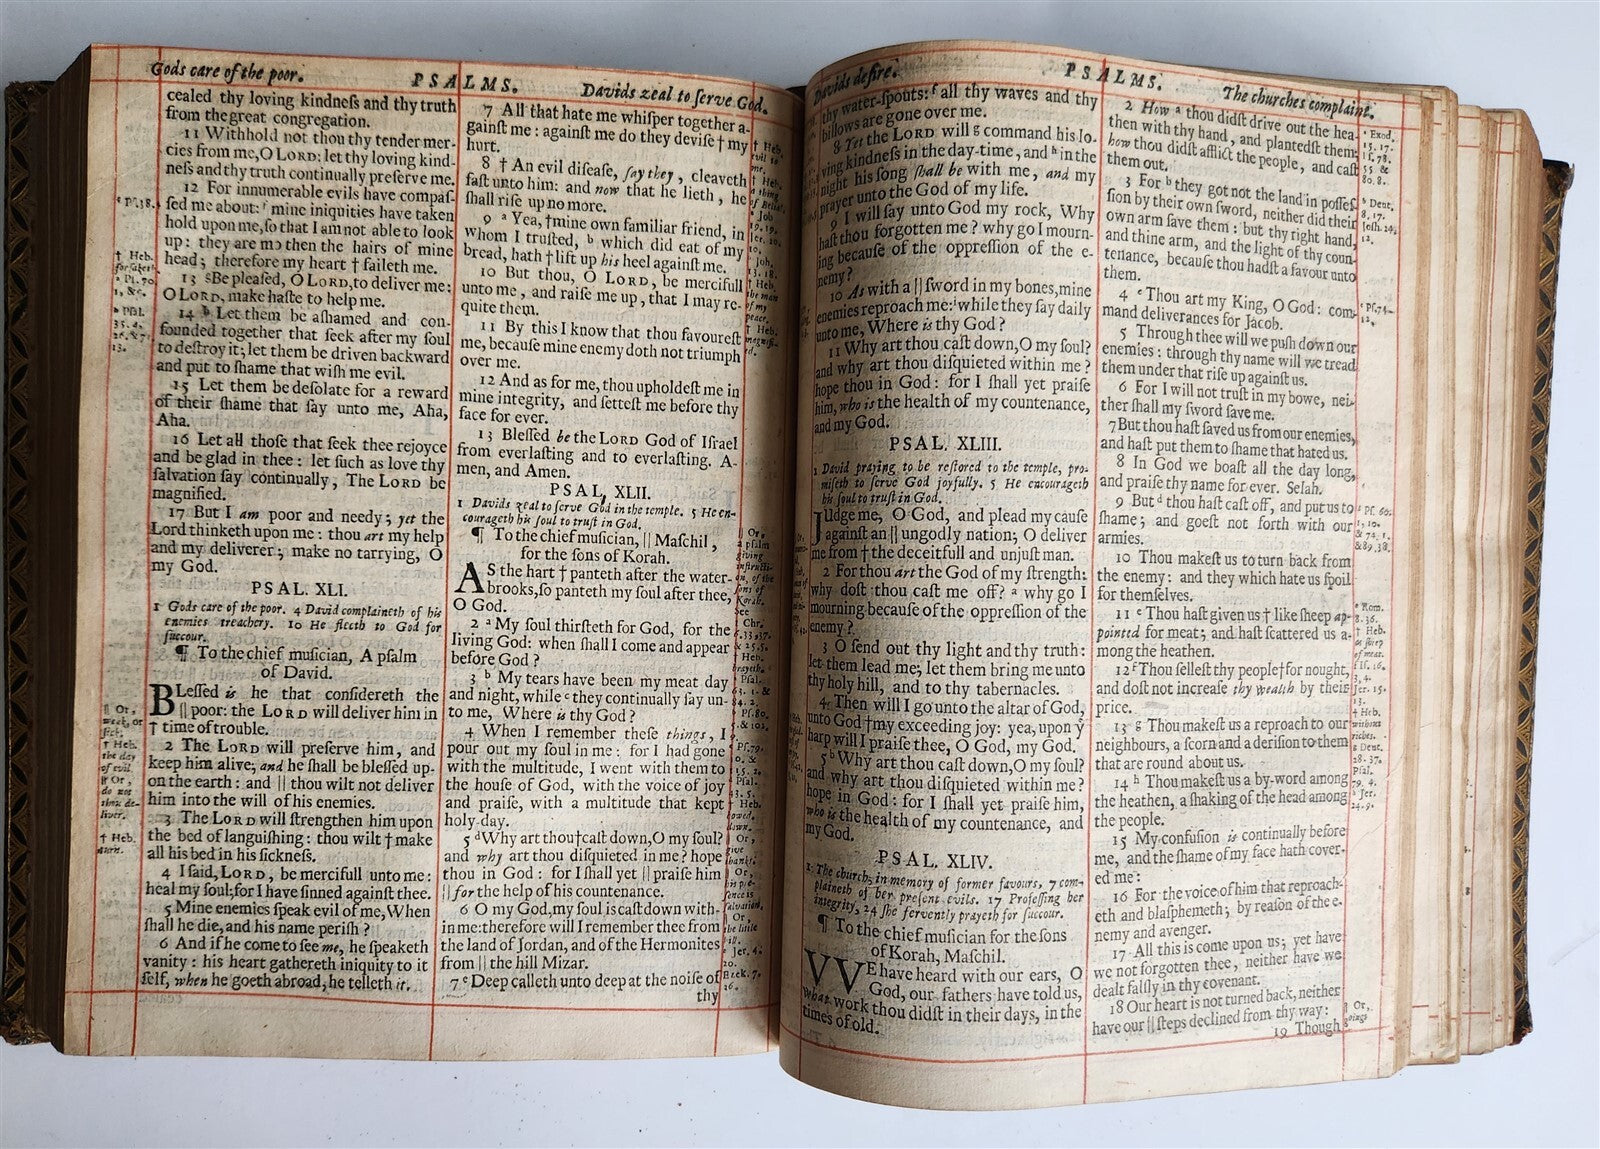 Gods care of the poor.
PSALMS.
Davids zeal to serve God.
cealed thy loving kindneſs and thy truth
from the great congregation.
11 Withhold not thou thy tender mer-
cies from me, O LORD: let thy loving kind-
neſs and thy truth continually preſerve me.
12 For innumerable evils have compaſ-
ſed me about: ʳ mine iniquities have taken
hold upon me, ſo that I am not able to look
up: they are mo then the hairs of mine
head; therefore my heart † faileth me.
13 ᵍBe pleaſed, O LORD, to deliver me:
O LORD, make haſte to help me.
14 ʰ Let them be aſhamed and con-
founded together that ſeek after my ſoul
to deſtroy it; let them be driven backward
and put to ſhame that wiſh me evil.
15 Let them be deſolate for a reward
of their ſhame that ſay unto me, Aha,
Aha.
16 Let all thoſe that ſeek thee rejoyce
and be glad in thee: let ſuch as love thy
ſalvation ſay continually, The LORD be
magnified.
17 But I am poor and needy; yet the
Lord thinketh upon me: thou art my help
and my deliverer; make no tarrying, O
my God.
PSAL. XLI.
1 Gods care of the poor. 4 David complaineth of his
enemies treachery. 10 He fleeth to God for
ſuccour.
¶ To the chief muſician, A pſalm
of David.
BLeſſed is he that conſidereth the
|| poor: the LORD will deliver him in
† time of trouble.
2 The LORD will preſerve him, and
keep him alive; and he ſhall be bleſſed up-
on the earth: and || thou wilt not deliver
him into the will of his enemies.
3 The LORD will ſtrengthen him upon
the bed of languiſhing: thou wilt † make
all his bed in his ſickneſs.
4 I ſaid, LORD, be mercifull unto me:
heal my ſoul; for I have ſinned againſt thee.
5 Mine enemies ſpeak evil of me, When
ſhall he die, and his name periſh?
6 And if he come to ſee me, he ſpeaketh
vanity: his heart gathereth iniquity to it
ſelf, when he goeth abroad, he telleth it.
† Heb.
|| Or,
† Heb.
the day
of evil.
|| Or,
do not
thou de-
liver.
† Heb.
turn.
7 All that hate me whiſper together a-
gainſt me: againſt me do they deviſe † my
hurt.
8 † An evil diſeaſe, ſay they, cleaveth
faſt unto him: and now that he lieth, he
ſhall riſe up no more.
9 ᵃ Yea, † mine own familiar friend, in
whom I truſted, ᵇ which did eat of my
bread, hath † lift up his heel againſt me.
10 But thou, O LORD, be mercifull
unto me, and raiſe me up, that I may re-
quite them.
11 By this I know that thou favoureſt
me, becauſe mine enemy doth not triumph
over me.
12 And as for me, thou upholdeſt me in
mine integrity, and ſetteſt me before thy
face for ever.
13 Bleſſed be the LORD God of Iſrael
from everlaſting and to everlaſting. A-
men, and Amen.
PSAL. XLII.
1 Davids zeal to ſerve God in the temple. 5 He en-
courageth his ſoul to truſt in God.
¶ To the chief muſician, || Maſchil,
for the ſons of Korah.
AS the hart † panteth after the water-
brooks, ſo panteth my ſoul after thee,
O God.
2 ᵃ My ſoul thirſteth for God, for the
living God: when ſhall I come and appear
before God?
3 ᵇ My tears have been my meat day
and night, while ᶜ they continually ſay un-
to me, Where is thy God?
4 When I remember theſe things, I
pour out my ſoul in me: for I had gone
with the multitude, I went with them to
the houſe of God, with the voice of joy
and praiſe, with a multitude that kept
holy-day.
5 ᵈ Why art thou † caſt down, O my ſoul?
and why art thou diſquieted in me? hope
thou in God: for I ſhall yet || praiſe him
|| for the help of his countenance.
6 O my God, my ſoul is caſt down with-
in me: therefore will I remember thee from
the land of Jordan, and of the Hermonites
from || the hill Mizar.
7 ᵉ Deep calleth unto deep at the noiſe of
thy
Davids deſire.
PSALMS.
The churches complaint.
thy water-ſpouts: ᶠ all thy waves and thy
billows are gone over me.
8 Yet the LORD will ᵍ command his lo-
ving kindneſs in the day-time, and ʰ in the
night his ſong ſhall be with me, and my
prayer unto the God of my life.
9 I will ſay unto God my rock, Why
haſt thou forgotten me? why go I mourn-
ing becauſe of the oppreſſion of the e-
nemy?
10 As with a || ſword in my bones, mine
enemies reproach me: while they ſay daily
unto me, Where is thy God?
11 Why art thou caſt down, O my ſoul?
and why art thou diſquieted within me?
hope thou in God: for I ſhall yet praiſe
him, who is the health of my countenance,
and my God.
PSAL. XLIII.
1 David praying to be reſtored to the temple, pro-
miſeth to ſerve God joyfully. 5 He encourageth
his ſoul to truſt in God.
JUdge me, O God, and plead my cauſe
againſt an || ungodly nation; O deliver
me from † the deceitfull and unjuſt man.
2 For thou art the God of my ſtrength:
why doſt thou caſt me off? ᵃ why go I
mourning becauſe of the oppreſſion of the
enemy?
3 O ſend out thy light and thy truth:
let them lead me; let them bring me unto
thy holy hill, and to thy tabernacles.
4 Then will I go unto the altar of God,
unto God † my exceeding joy: yea, upon yͤ
harp will I praiſe thee, O God, my God.
5 ᵇ Why art thou caſt down, O my ſoul?
and why art thou diſquieted within me?
hope in God: for I ſhall yet praiſe him,
who is the health of my countenance, and
my God.
PSAL. XLIV.
1 The church, in memory of former favours, 7 com-
plaineth of her preſent evils. 17 Profeſſing her
integrity, 24 ſhe fervently prayeth for ſuccour.
¶ To the chief muſician for the ſons
of Korah, Maſchil.
WE have heard with our ears, O
God, our fathers have told us,
what work thou didſt in their days, in the
times of old.
2 How ᵃ thou didſt drive out the hea-
then with thy hand, and plantedſt them:
how thou didſt afflict the people, and caſt
them out.
3 For ᵇ they got not the land in poſſeſ-
ſion by their own ſword, neither did their
own arm ſave them: but thy right hand,
and thine arm, and the light of thy coun-
tenance, becauſe thou hadſt a favour unto
them.
4 ᶜ Thou art my King, O God: com-
mand deliverances for Jacob.
5 Through thee will we puſh down our
enemies: through thy name will we tread
them under that riſe up againſt us.
6 For I will not truſt in my bowe, nei-
ther ſhall my ſword ſave me.
7 But thou haſt ſaved us from our enemies,
and haſt put them to ſhame that hated us.
8 In God we boaſt all the day long,
and praiſe thy name for ever. Selah.
9 But ᵈ thou haſt caſt off, and put us to
ſhame; and goeſt not forth with our
armies.
10 Thou makeſt us to turn back from
the enemy: and they which hate us ſpoil
for themſelves.
11 ᵉ Thou haſt given us † like ſheep ap-
pointed for meat; and haſt ſcattered us a-
mong the heathen.
12 ᶠ Thou ſelleſt thy people † for nought,
and doſt not increaſe thy wealth by their
price.
13 ᵍ Thou makeſt us a reproach to our
neighbours, a ſcorn and a deriſion to them
that are round about us.
14 ʰ Thou makeſt us a by-word among
the heathen, a ſhaking of the head among
the people.
15 My confuſion is continually before
me, and the ſhame of my face hath cover-
ed me:
16 For the voice of him that reproach-
eth and blaſphemeth; by reaſon of the e-
nemy and avenger.
17 All this is come upon us; yet have
we not forgotten thee, neither have we
dealt falſly in thy covenant.
18 Our heart is not turned back, neither
have our || ſteps declined from thy way:
19 Though
ᵃ Exod.
15. 17.
ᵇ Deut.
8. 17.
Joſh. 24.
12.
ᵉ Rom.
8. 36.
† Heb.
ᵍ Deut.
28. 37.
|| Or,
goings